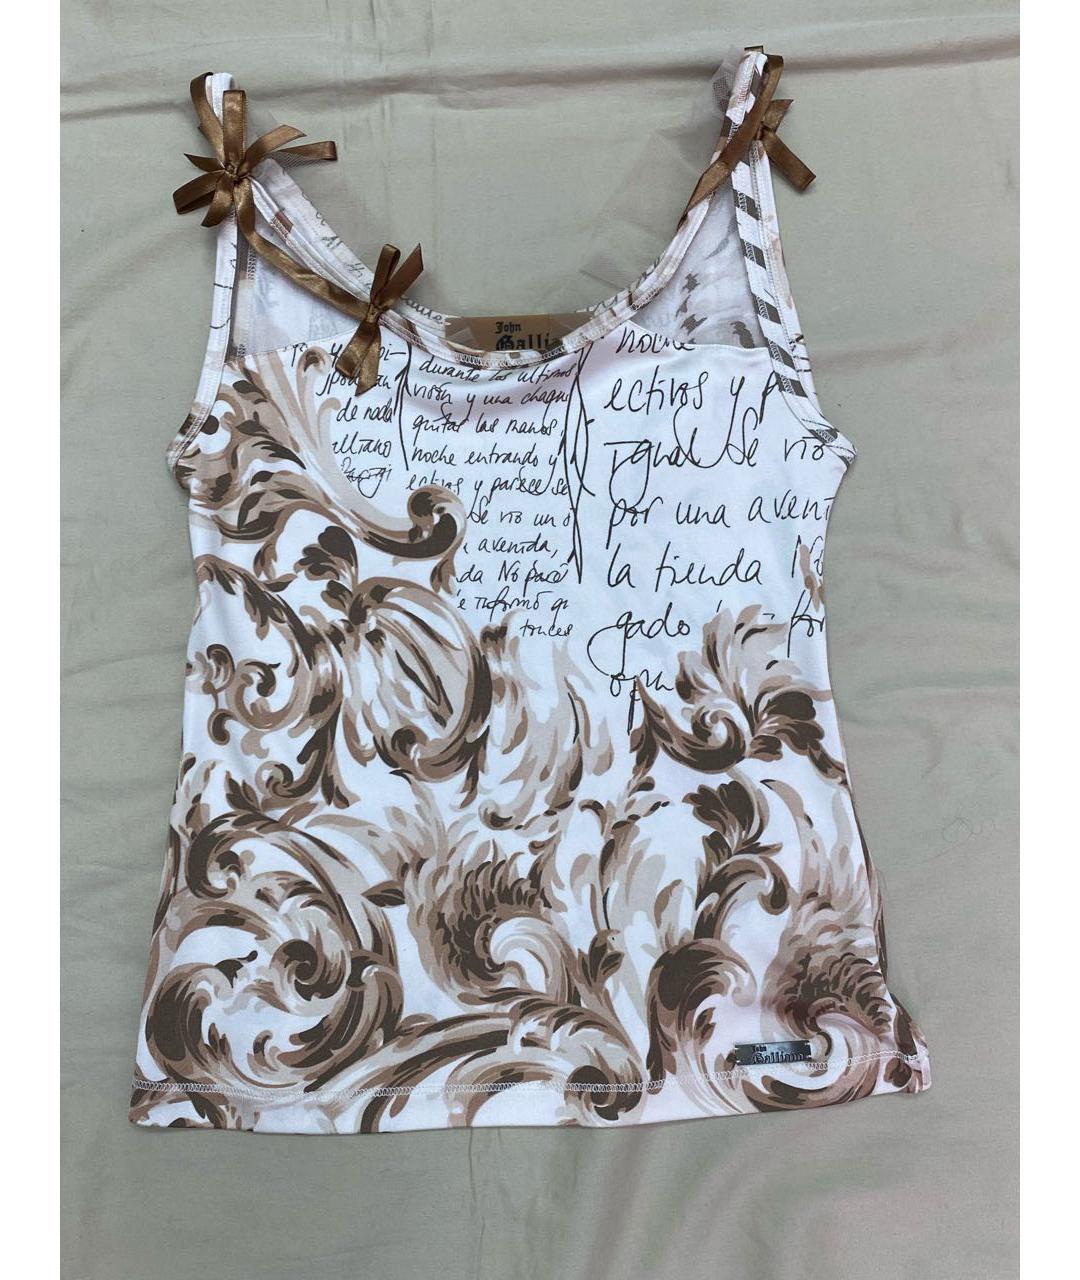 John
Galli
de nada
durante los ultimos
visión y una chaqu
quitar las manos,
noche entrando y
ectivos y parece se
Se vio un o
avenida,
da No paró
e informó qu
tonces
noche
ectivos y p
igual Se vio
por una aven
la tienda No
gado
John
Galliano